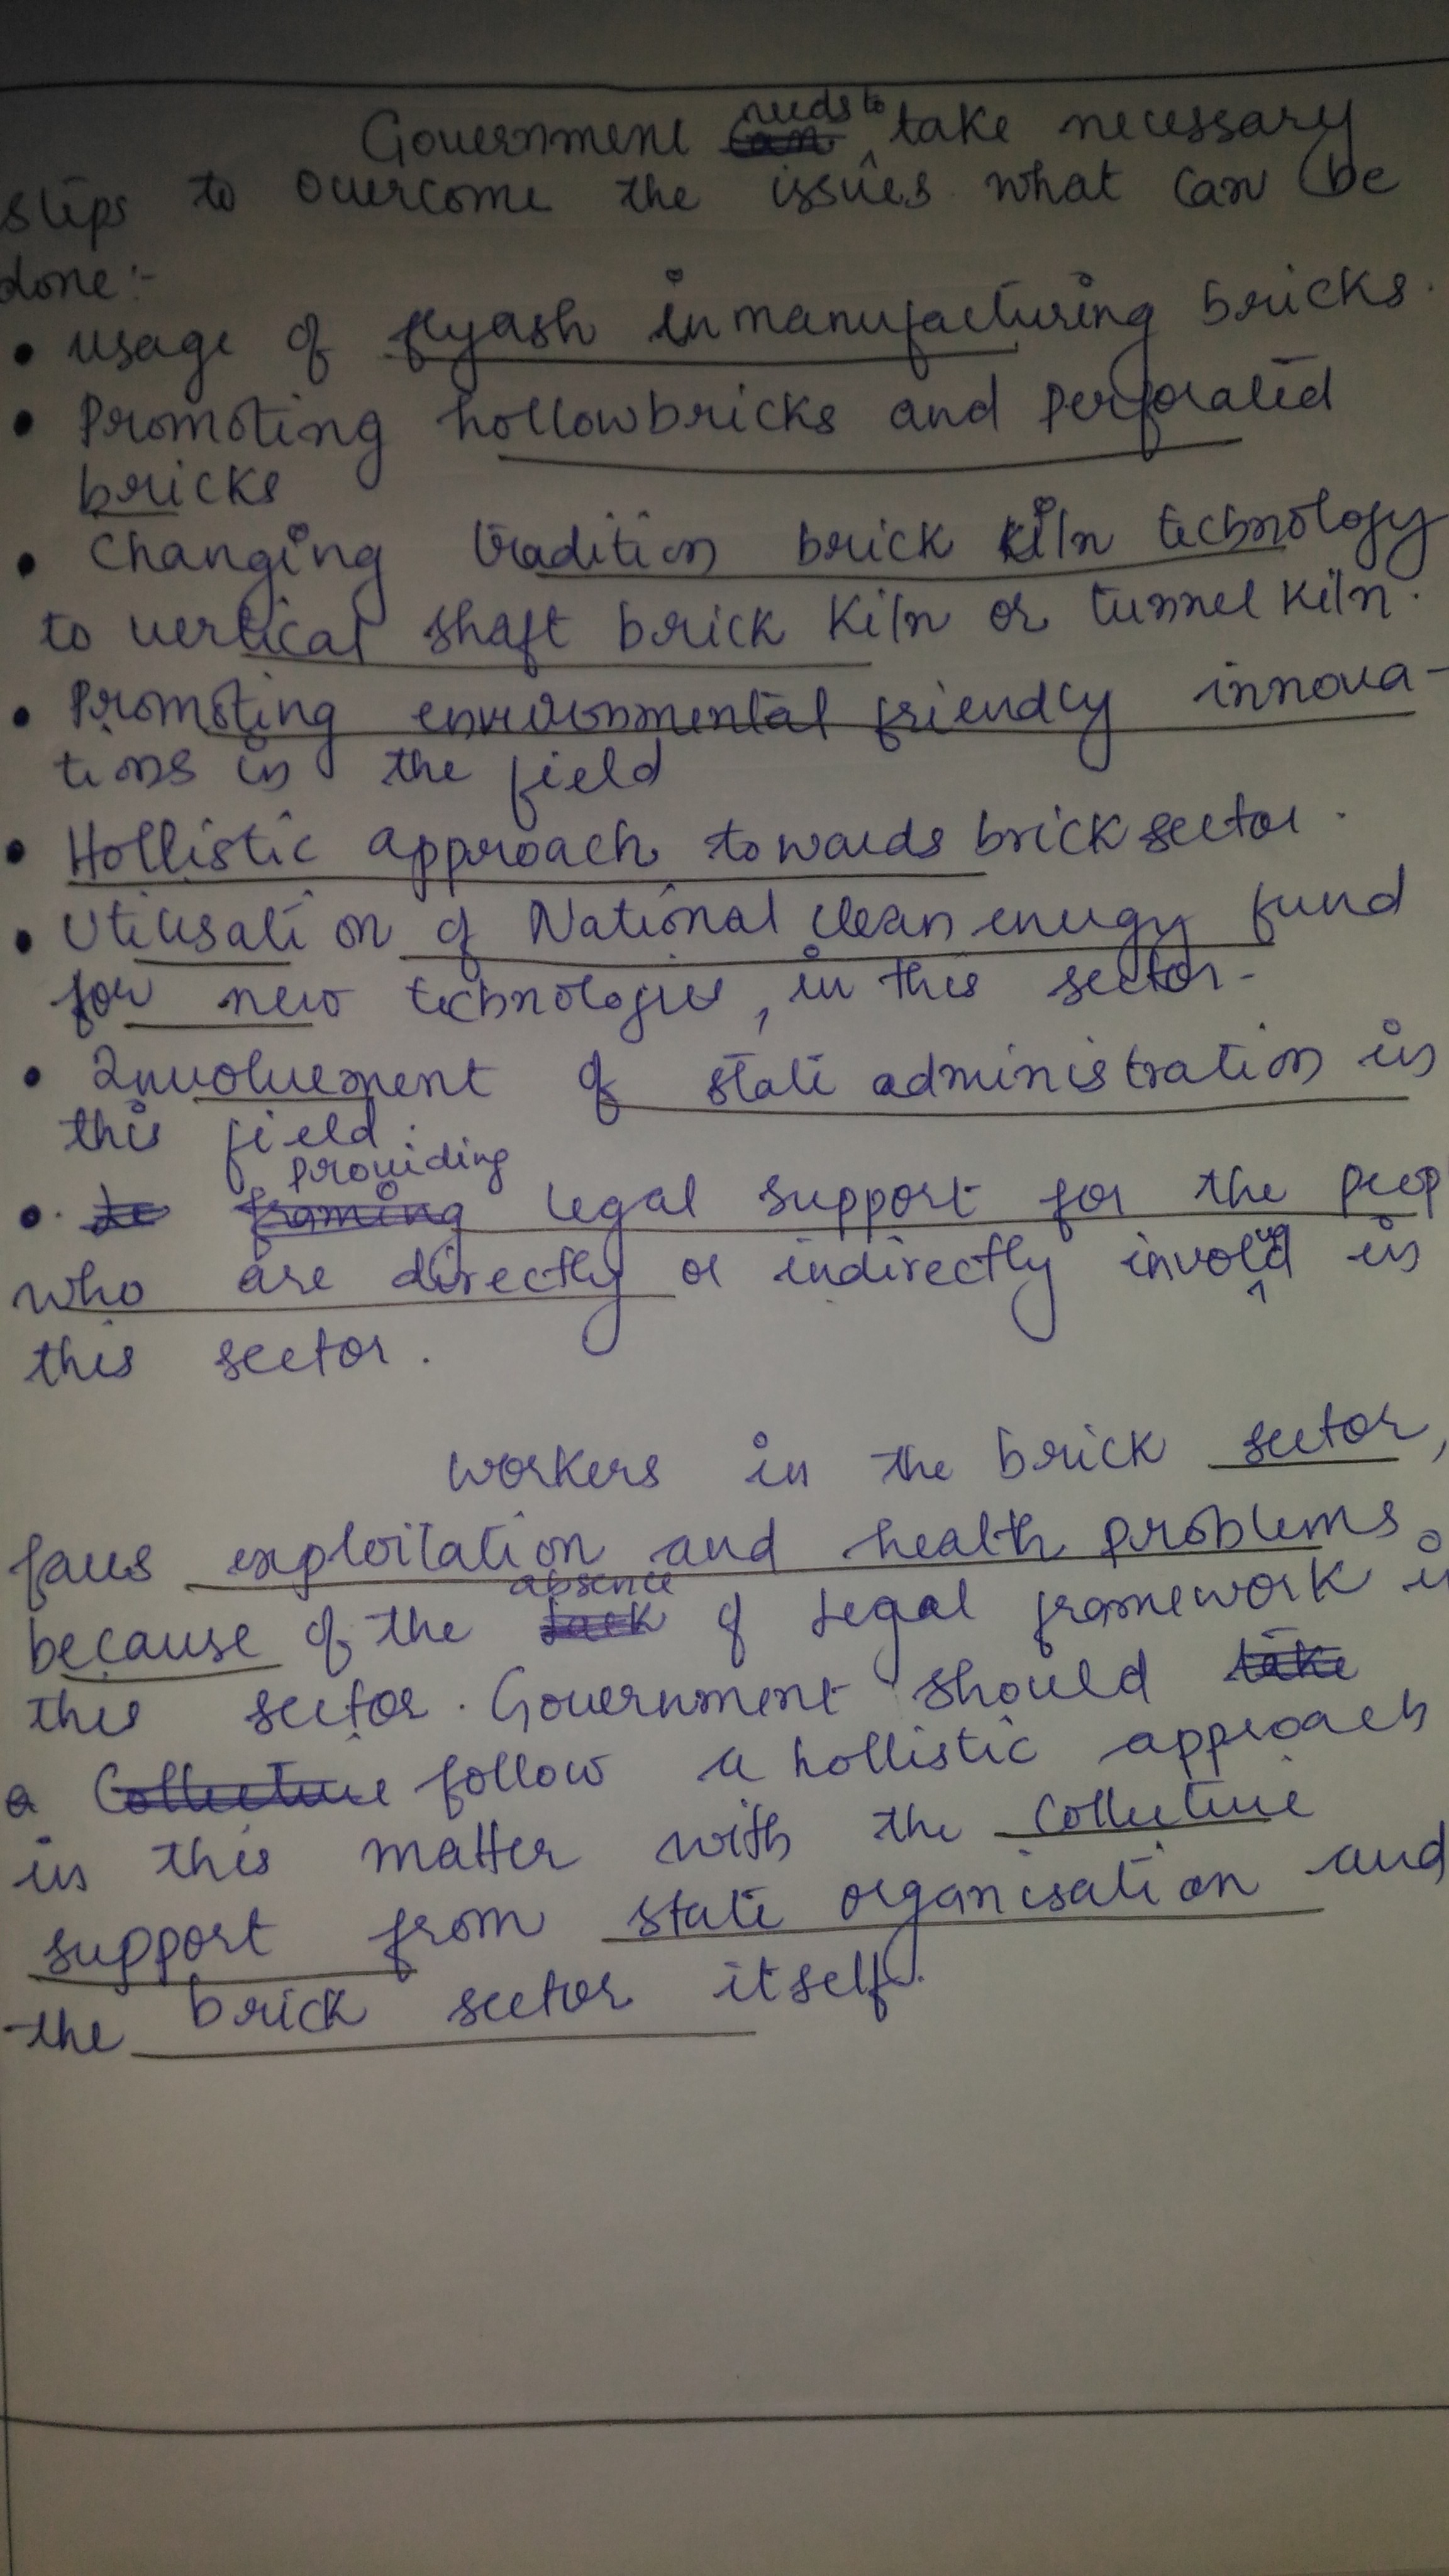 Government needs to take necessary
steps to overcome the issues what can be
done:-
• Usage of flyash in manufacturing bricks.
• Promoting hollowbricks and perforated
bricks
• Changing tradition brick kiln technology
to vertical shaft brick kiln or tunnel kiln.
• Promoting environmental friendly innova-
tions in the field
• Hollistic approach towards brick sector.
• Utilisation of National clean energy fund
for new technologies, in this sector.
• Involvement of state administration in
this field.
• providing legal support for the peop
who are directly or indirectly involved in
this sector.
Workers in the brick sector,
faces exploitation and health problems
because of the absence of legal framework in
this sector. Government should
follow a hollistic approach
in this matter with the collective
support from state organisation and
the brick sector itself.